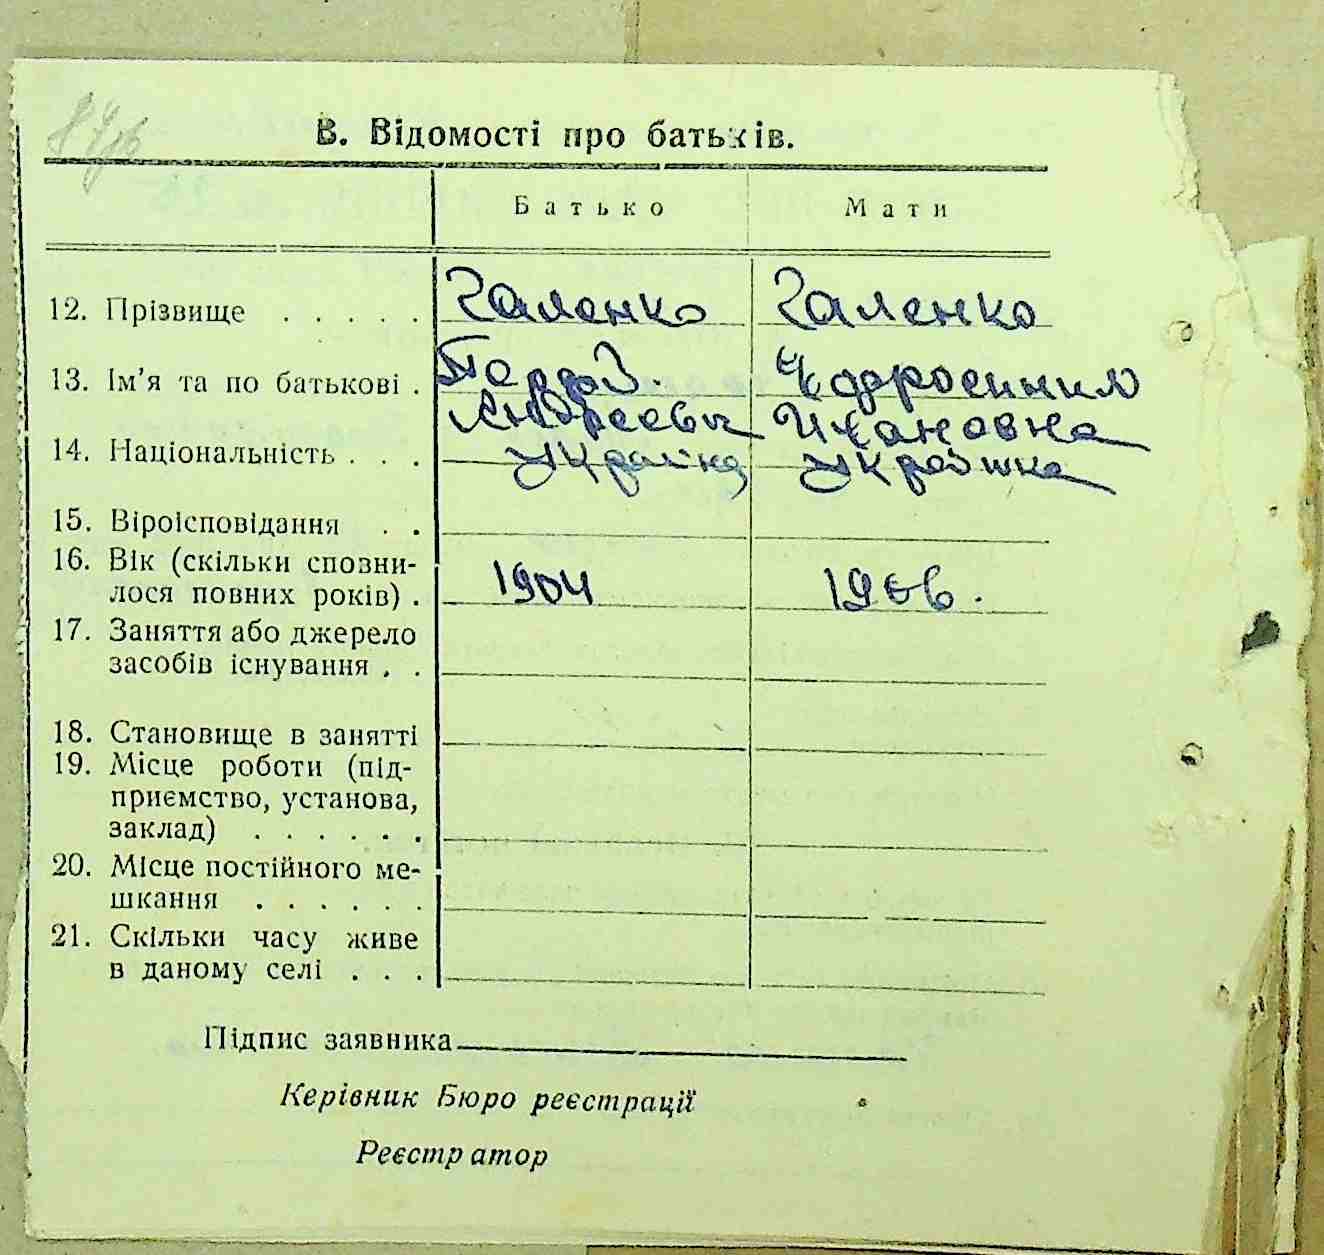 В. Відомості про батьків.
Батько Мати
12. Прізвище . . . . . Галенко Галенко
13. Ім'я та по батькові .
Андреевич Ивановна
14. Національність . . . Україн Українка
15. Віроісповідання . .
16. Вік (скільки сповни-
лося повних років) . 1904 1906.
17. Заняття або джерело
засобів існування . .
18. Становище в занятті
19. Місце роботи (під-
приємство, установа,
заклад) . . . . . .
20. Місце постійного ме-
шкання . . . . . .
21. Скільки часу живе
в даному селі . . .
Підпис заявника
Керівник Бюро реєстрації
Реєстратор